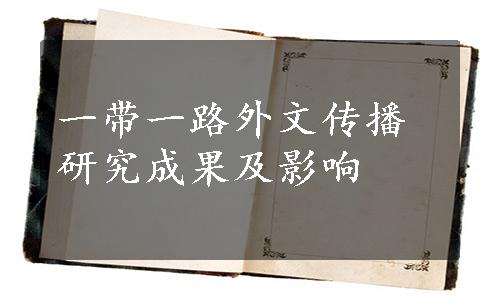 一带一路外文传播
研究成果及影响